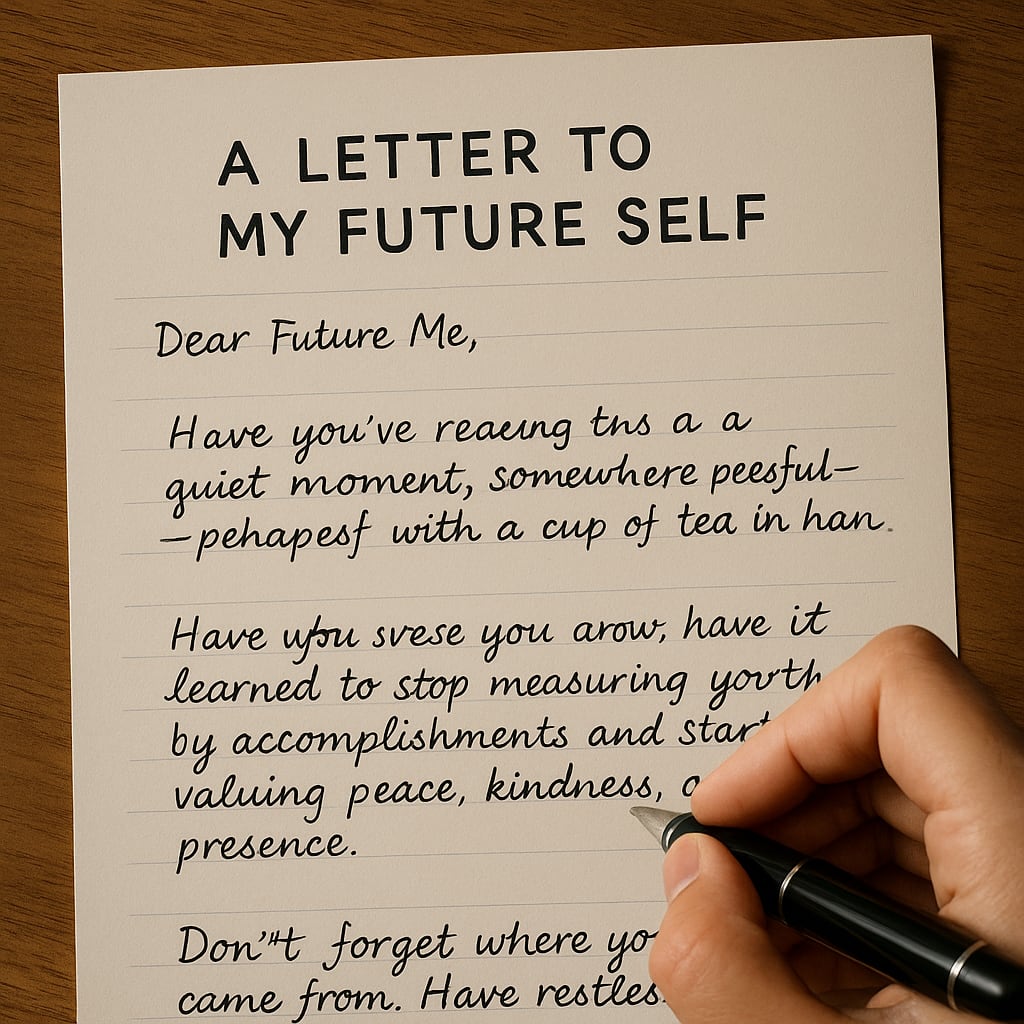 A LETTER TO
MY FUTURE SELF
Dear Future Me,
Have you've reaeung tns a a
quiet moment, somewhere peesful—
—pehapesf with a cup of tea in han.
Have you svese you arow, have it
learned to stop measuring
by accomplishments and start
valuing peace, kindness,
presence.
Don'"t forget where yo
came from. Have restles